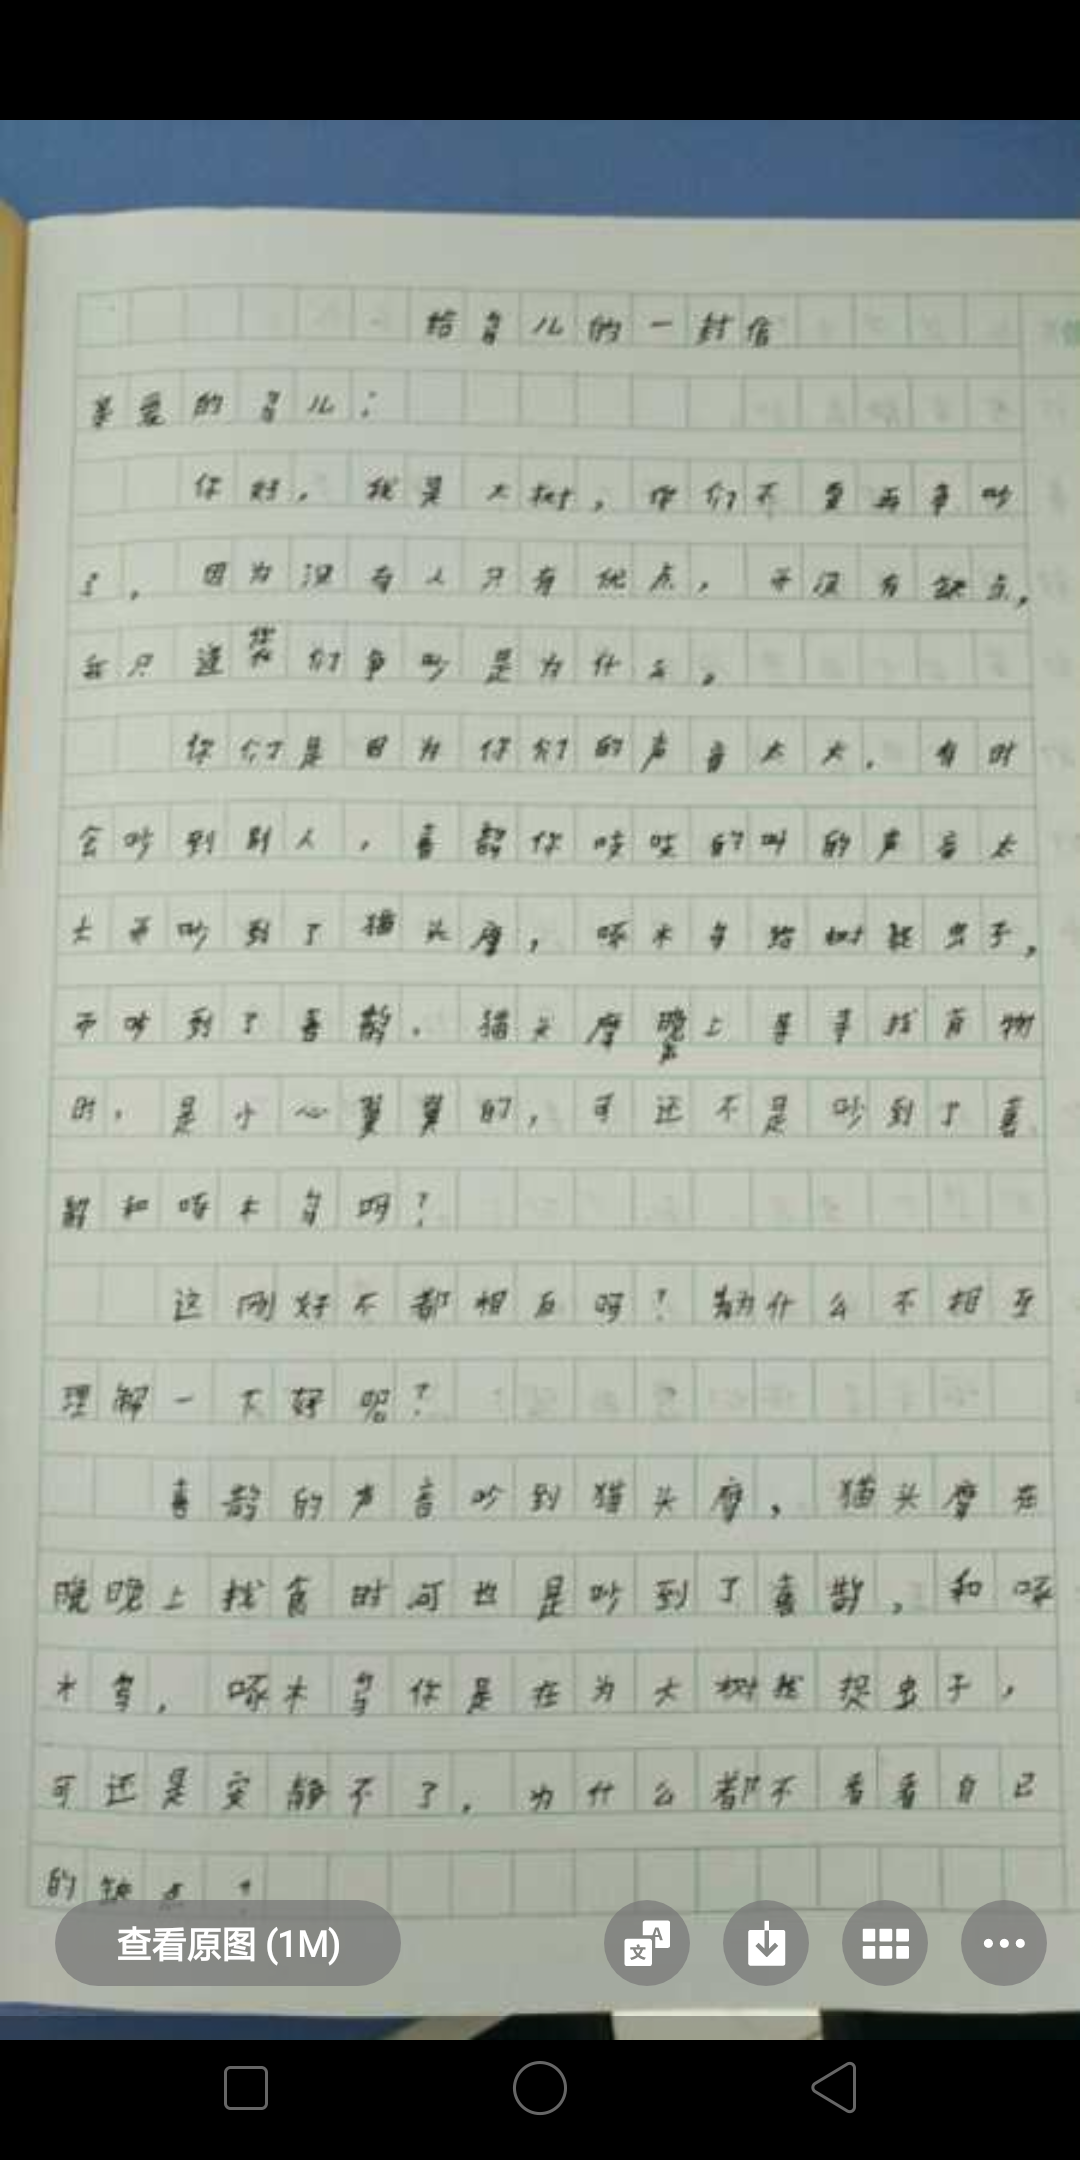 给鸟儿的一封信
亲爱的鸟儿：
你好，我是大树，你们不要再争吵
了，因为没有人只有优点，而没有缺点，
我只道你们争吵是为什么。
你们是因为你们的声音太大，有时
会吵到别人，喜鹊你吱吱的叫的声音太
大而吵到了猫头鹰，啄木鸟给树捉虫子，
而吵到了喜鹊，猫头鹰晚上寻找食物
时，是小心翼翼的，可还不是吵到了喜
鹊和啄木鸟吗？
这刚好不都相反吗？为什么不相互
理解一下好呢？
喜鹊的声音吵到猫头鹰，猫头鹰在
晚晚上找食时可也是吵到了喜鹊，和啄
木鸟，啄木鸟你是在为大树找捉虫子，
可还是安静不了，为什么都不看看自己
的缺点？
查看原图 (1M)